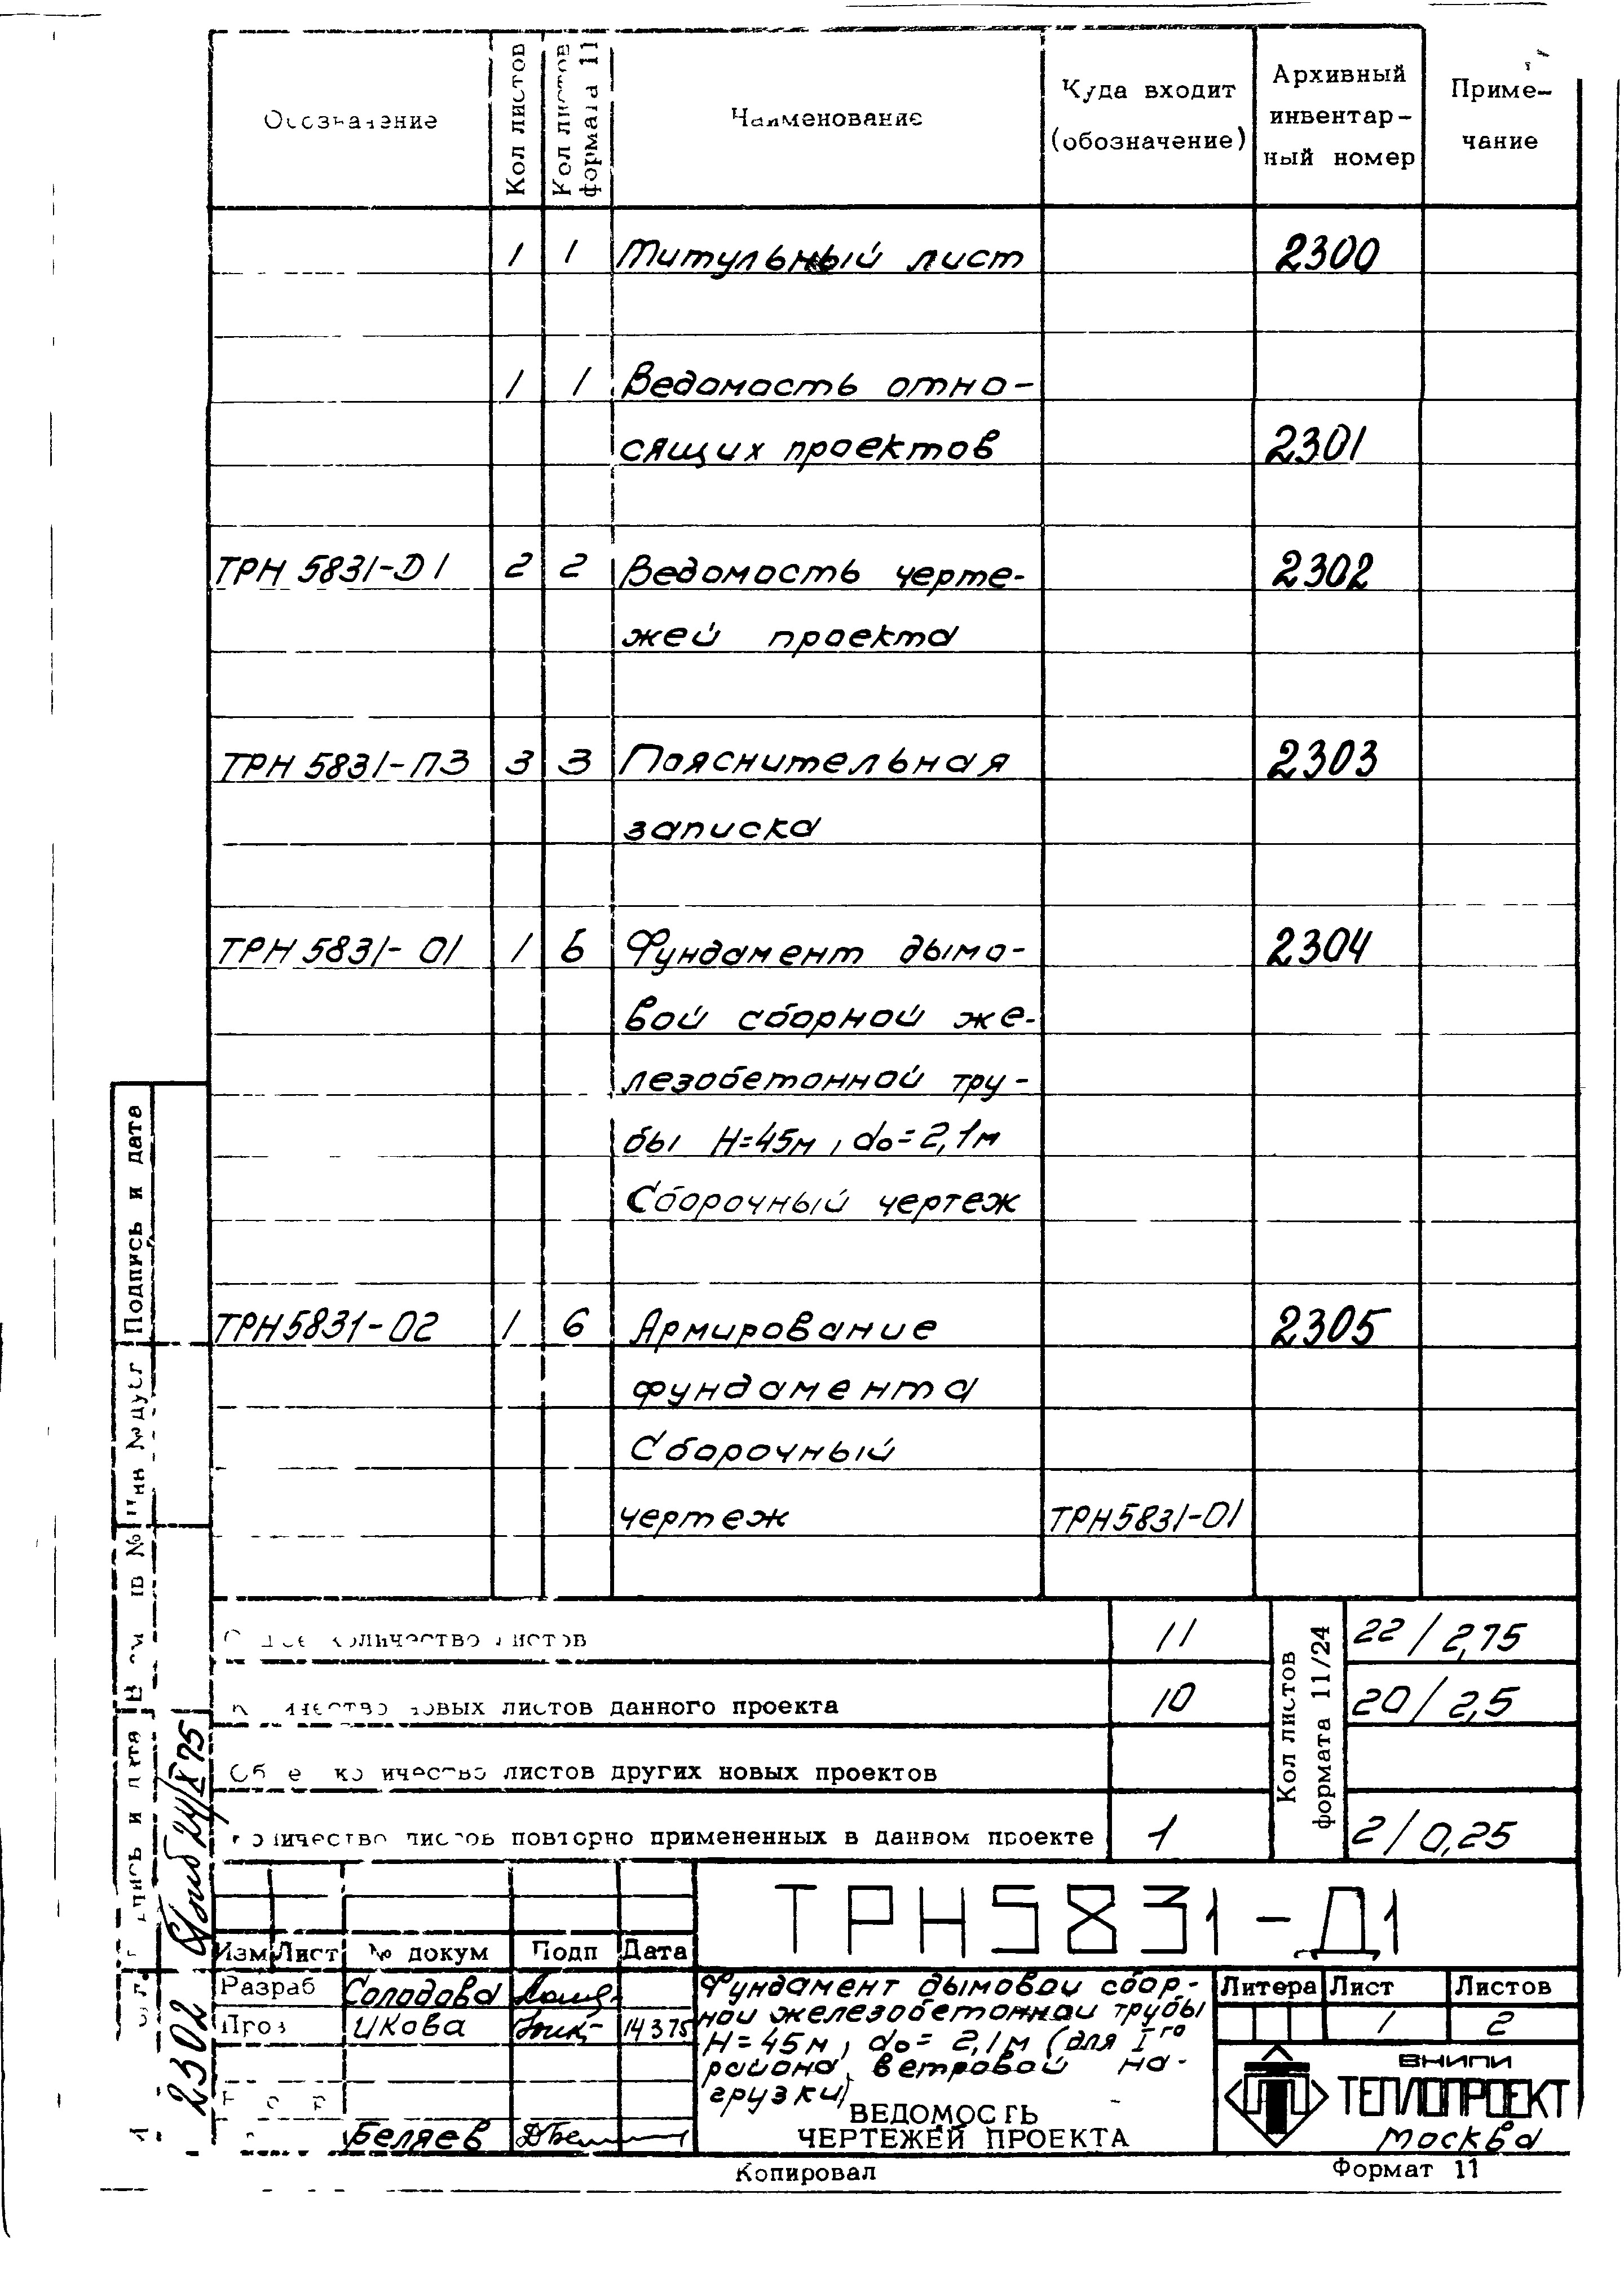 Обозначение
Кол листов
Кол листов
формата 11
Наименование
Куда входит
(обозначение)
Архивный
инвентар-
ный номер
Приме-
чание
1 1 Титульный лист 2300
1 1 Ведомость отно-
сящих проектов 2301
ТРН 5831-Д1 2 2 Ведомость черте- 2302
жей проекта
ТРН 5831-ПЗ 3 3 Пояснительная 2303
записка
ТРН 5831-01 1 6 Фундамент дымо- 2304
вой сборной же-
лезобетонной тру-
бы H=45м, d₀=2,1м
Сборочный чертеж
ТРН5831-02 1 6 Армирование 2305
фундамента
Сборочный
чертеж ТРН5831-01
Общее количество листов 11 22/2,75
Количество новых листов данного проекта 10 20/2,5
Общее количество листов других новых проектов
Количество листов повторно примененных в данном проекте 1 2/0,25
Кол листов
формата 11/24
ТРН5831-Д1
Изм Лист № докум Подп Дата
Разраб Солодова
Пров Икова 14 3 75
Беляев
Фундамент дымовой сбор-
ной железобетонной трубы
H=45м, d₀=2,1м (для Iго
района ветровой на-
грузки)
ВЕДОМОСТЬ
ЧЕРТЕЖЕЙ ПРОЕКТА
Литера Лист Листов
1 2
ВНИПИ
ТЕПЛОПРОЕКТ
Москва
Копировал
Формат 11
Подпись и дата
Инв № дубл
2302
24/X 75